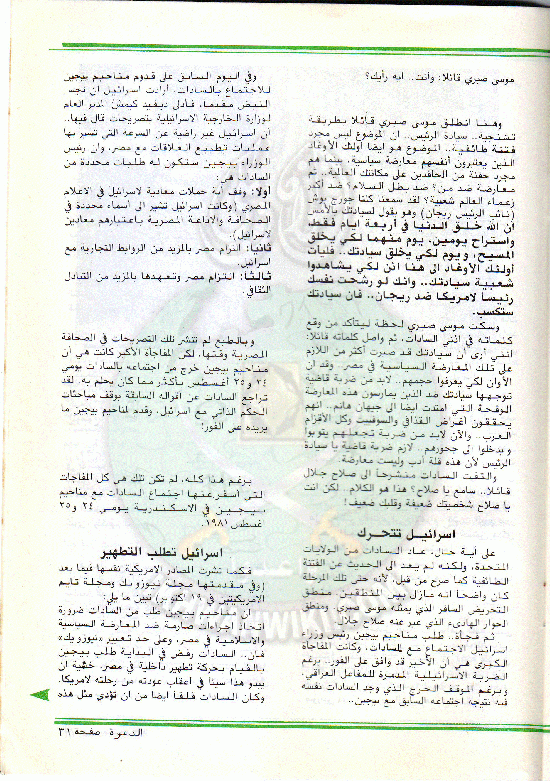 موسى صبري قائلا: وأنت.. ايه رأيك؟
وهنا انطلق موسى صبري قائلا بطريقة
تشنجية.. سيادة الرئيس.. ان الموضوع ليس مجرد
فتنة طائفية.. الموضوع هو ايضا أولئك الأوغاد
الذين يعتبرون أنفسهم معارضة سياسية، بينما هم
مجرد حفنة من الحاقدين على مكانتك العالية.. ثم
معارضة ضد من؟ ضد بطل السلام؟ ضد أكبر
زعماء العالم شعبية؟ لقد سمعنا كلنا جورج بوش
(نائب الرئيس ريجان) وهو يقول لسيادتك بالأمس
أن الله خلق الدنيا في أربعة أيام فقط،
واستراح يومين، يوم منهما لكي يخلق
المسيح، ويوم لكي يخلق سيادتك.. فليأت
أولئك الأوغاد الى هنا اذن لكي يشاهدوا
شعبية سيادتك.. وانك لو رشحت نفسك
رئيساً لامريكا ضد ريجان.. فان سيادتك
ستكسب.
وسكت موسى صبري لحظة ليتأكد من وقع
كلماته في اذني السادات، ثم واصل كلماته قائلا:
انني أرى أن سيادتك قد صبرت أكثر من اللازم
على تلك المعارضة السياسية في مصر.. وقد آن
الأوان لكي يعرفوا حجمهم.. لابد من ضربة قاضية
توجهها سيادتك ضد الذين يمارسون هذه المعارضة
الوقحة التي امتدت ايضا الى جيهان هانم.. انهم
يحققون أغراض القذافي والسوفيت وكل الأقزام
العرب.. والآن لابد من ضربة تجعلهم يتوبوا
ويدخلوا الى جحورهم.. لازم ضربة قاضية يا سيادة
الرئيس لأن هذه قلة أدب وليست معارضة.
والتفت السادات منشرحاً الى صلاح جلال
قائلا.. سامع يا صلاح؟ هذا هو الكلام.. لكن انت
يا صلاح شخصيتك ضعيفة وقلبك ضعيف!
اسرائيل تتحرك
على أية حال، عاد السادات من الولايات
المتحدة، ولكنه لم يعد الى الحديث عن الفتنة
الطائفية كما صرح من قبل، لأنه حتى تلك المرحلة
كان واضحاً أنه مازال بين المنطقين، منطق
التحريض السافر الذي يمثله موسى صبري، ومنطق
الحوار الهادىء الذي عبر عنه صلاح جلال.
ثم فجأة.. طلب مناحيم بيجين رئيس وزراء
اسرائيل الاجتماع مع السادات، وكانت المفاجأة
الكبرى هي أن الأخير قد وافق على الفور.. برغم
الضربة الاسرائيلية المدمرة للمفاعل العراقي،
وبرغم الموقف الحرج الذي وجد السادات نفسه
فيه نتيجة اجتماعه السابق مع بيجين..
وفي اليوم السابق على قدوم مناحيم بيجين
للاجتماع بالسادات، أرادت اسرائيل ان تجس
النبض مقدما، فأدلى ديفيد كيمش المدير العام
لوزارة الخارجية الاسرائيلية بتصريحات قال فيها..
أن اسرائيل غير راضية عن السرعة التي تسير بها
عمليات تطبيع العلاقات مع مصر، وان رئيس
الوزراء بيجين ستكون له طلبات محددة من
السادات هي:
أولا: وقف أية حملات معادية لاسرائيل في الاعلام
المصري (وكانت اسرائيل تشير الى أسماء محددة في
الصحافة والاذاعة المصرية باعتبارهم معادين
لاسرائيل).
ثانيا: الزام مصر بالمزيد من الروابط التجارية مع
اسرائيل
ثالثا: التزام مصر وتعهدها بالمزيد من التبادل
الثقافي.
وبالطبع لم تنشر تلك التصريحات في الصحافة
المصرية وقتها، لكن المفاجأة الأكبر كانت هي أن
مناحيم بيجين خرج من اجتماعه بالسادات يومي
٢٤ و٢٥ أغسطس بأكثر مما كان يحلم به. لقد
تراجع السادات عن أقواله السابقة بوقف مباحثات
الحكم الذاتي مع اسرائيل، وقدم لمناحيم بيجين ما
يريده على الفور!
برغم هذا كله، لم تكن تلك هي كل المفاجآت
التي أسفر عنها اجتماع السادات مع مناحيم
بيجين في الاسكندرية يومي ٢٤ و٢٥
أغسطس ١٩٨١.
اسرائيل تطلب التطهير
فكما نشرت المصادر الامريكية نفسها فيما بعد
(وفي مقدمتها مجلة نيوزويك ومجلة تايم
الامريكيتين في ١٩ اكتوبر) تبين ما يلي:
ان مناحيم بيجين طلب من السادات ضرورة
اتخاذ اجراءات صارمة ضد المعارضة السياسية
والاسلامية في مصر، وعلى حد تعبير «نيوزويك»
فان.. السادات رفض في البداية طلب بيجين
بالقيام بحركة تطهير داخلية في مصر، خشية ان
يبدو هذا سيئاً في أعقاب عودته من رحلته لامريكا.
وكان السادات قلقاً ايضا من أن تؤدي مثل هذه
الدعوة صفحة ٣١